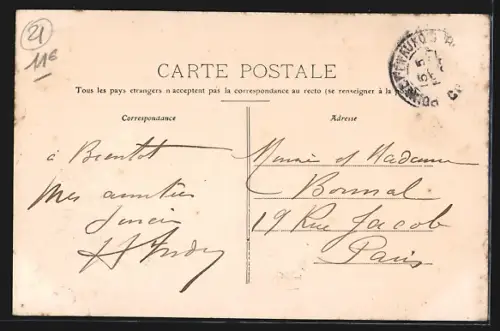 21
11€
CARTE POSTALE
Tous les pays étrangers n'acceptent pas la correspondance au recto (se renseigner à la
Correspondance
Adresse
à Bientôt
Mes amitiés
Monsieur et Madame
19 Rue Jacob
Paris